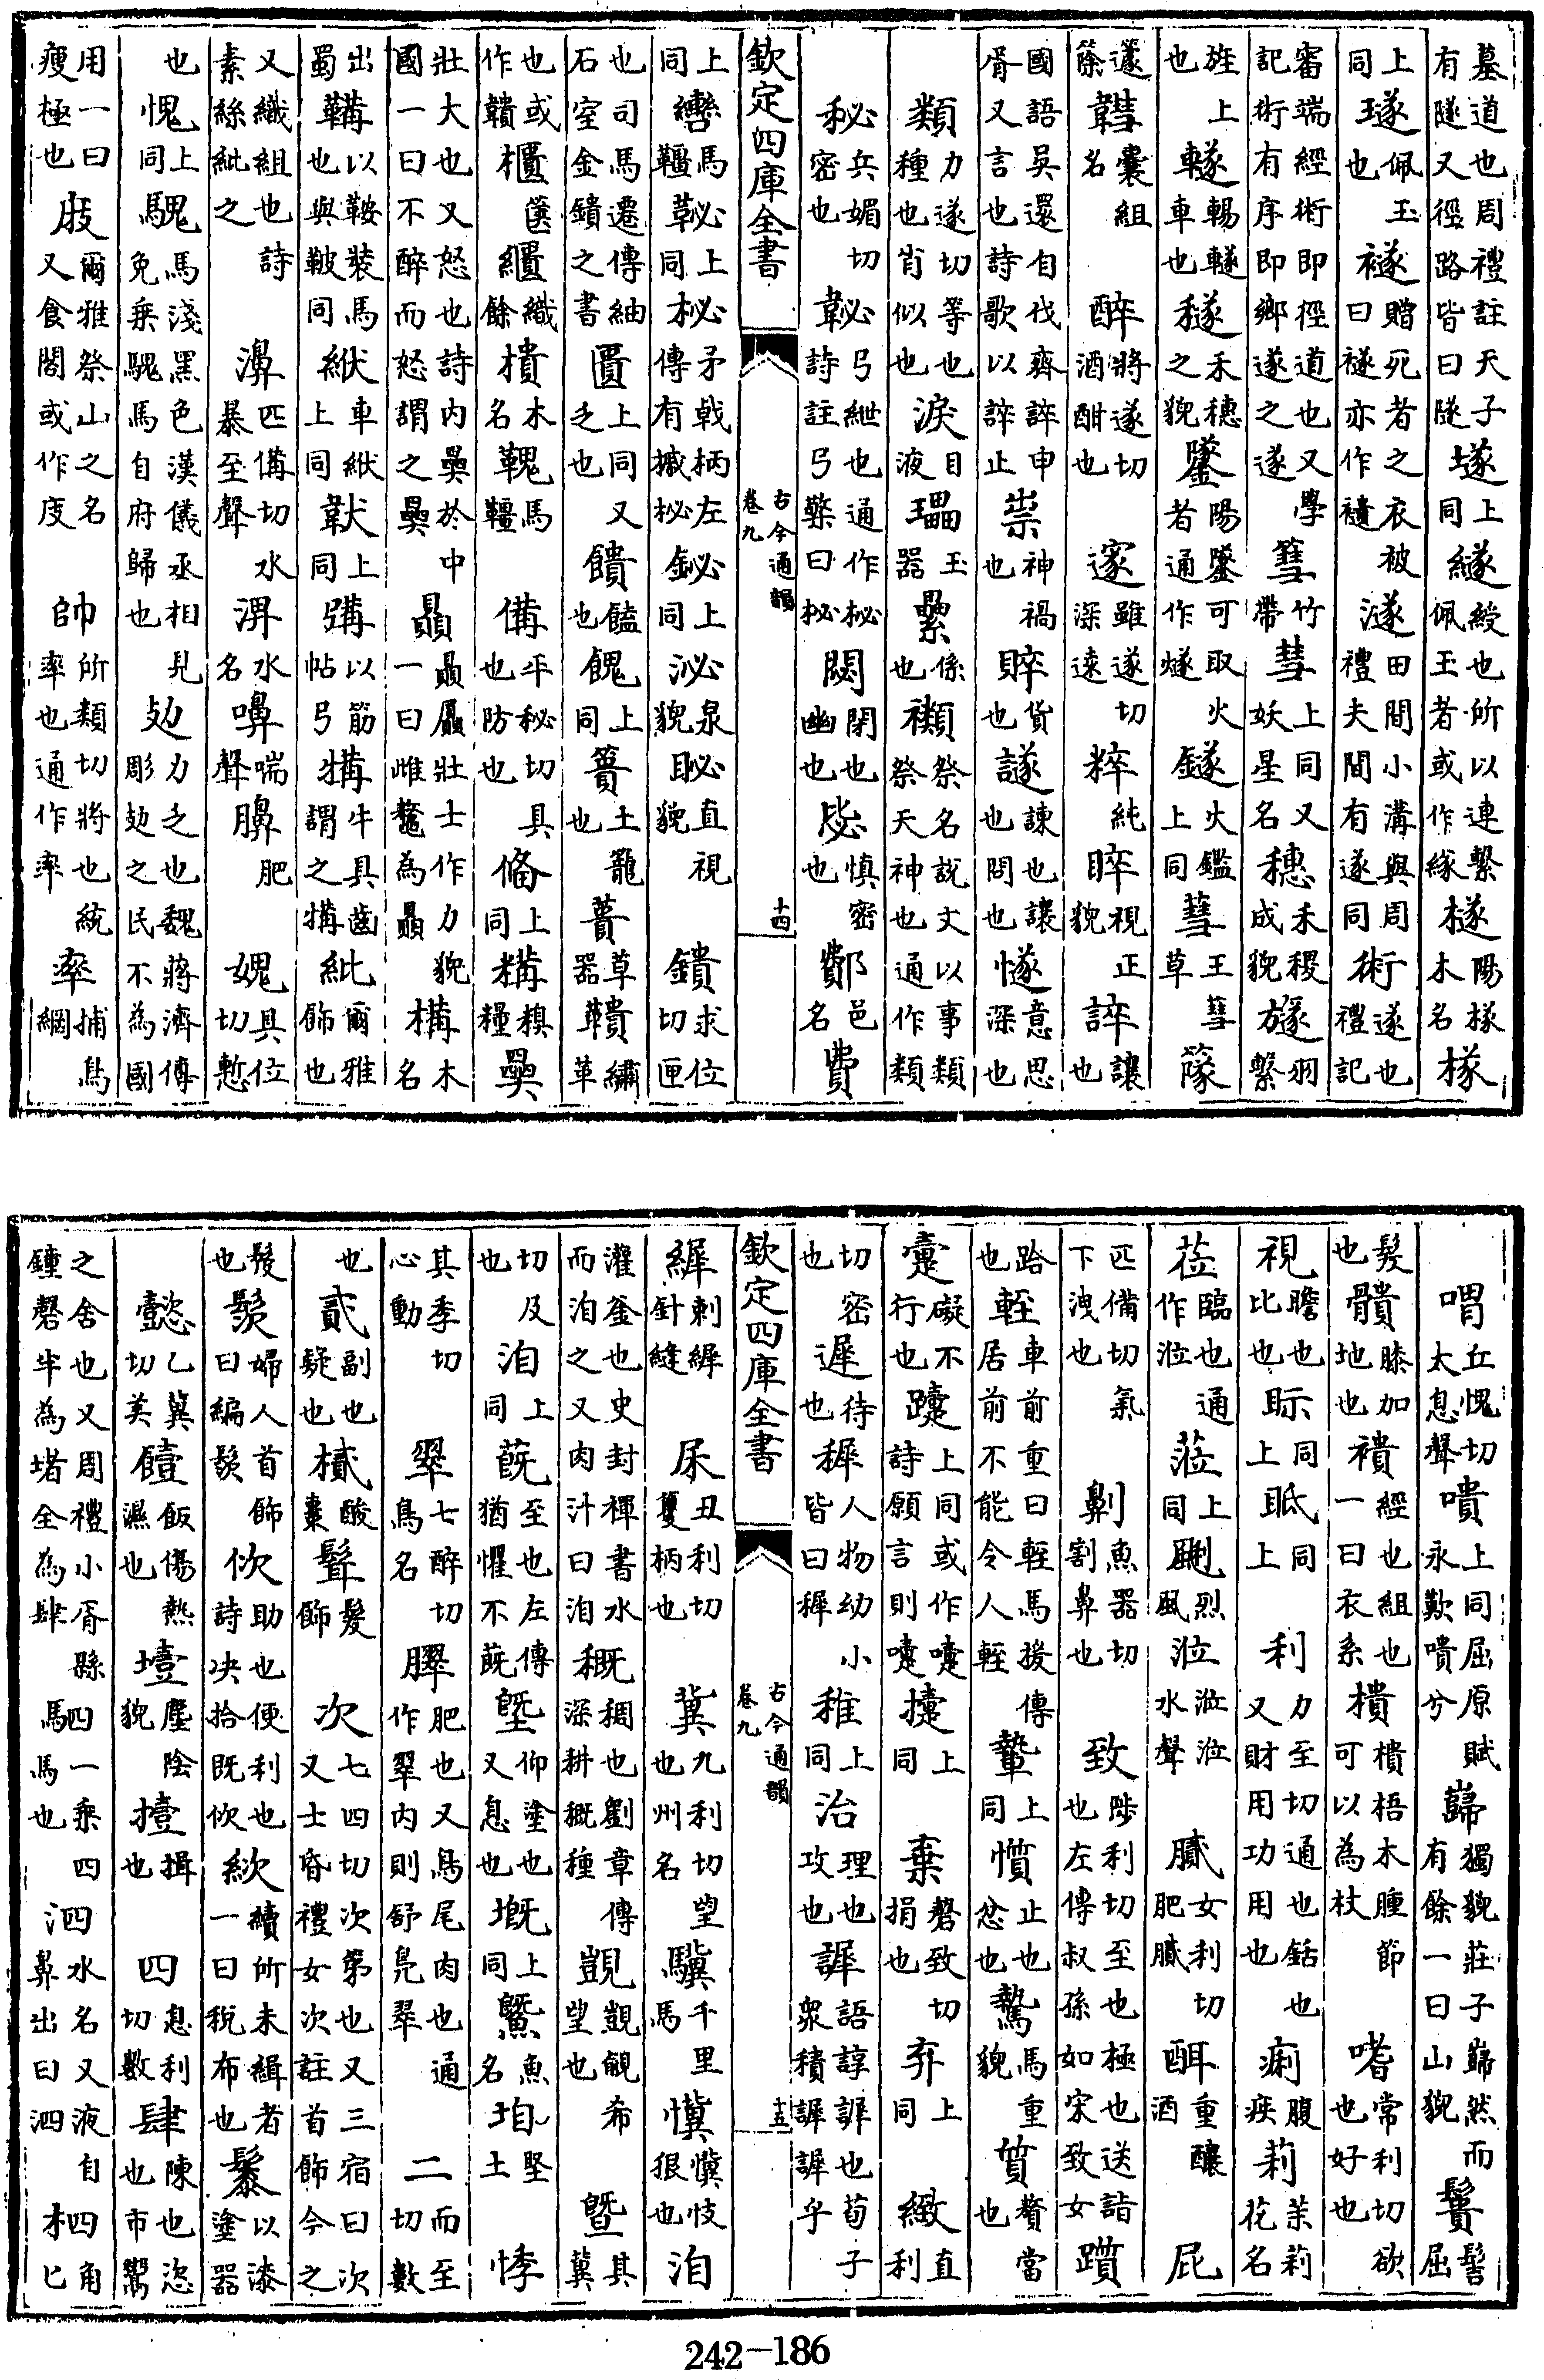 墓道也周禮註天子有隧又徑路皆曰隧㙂上同繸綬也所以連繫佩玉者或作緣檖陽檖木名㮃
上同璲佩玉也襚贈死者之衣被曰襚亦作䙡澻田間小溝與周禮夫間有遂同術遂也禮記
審端經術即徑道也又學記術有序即鄉遂之遂篲竹帚彗上同又妖星名穗禾稷成貌旞羽繫
旌上也䡵車暢䡵也穟禾穗之貌鐆陽鐆可取火者通作燧鐩火鑑上同蔧王蔧草䔹
蘧蒢囊組名醉將遂切酒酣也邃雖遂切深遠粹純睟視正貌誶讓也
國語吳還自伐齊誶申胥又言也詩歌以誶止祟神禍也賥貨也譢諫也讓也問也㥞意思深也
類力遂切等也種也肖似也淚目液瓃玉器纍係也禷祭名說文以事類祭天神也通作類
祕兵媚切密也䪐弓紲也通作柲詩註弓檠曰柲閟閉也幽也毖慎密也鄪邑名費
欽定四庫全書 古今通韻卷九 十四
上同轡馬韁䩛上同柲矛戟柄左傳有摵柲鉍上同泌泉貌䀣直視貌鐀求位切匣
也司馬遷傳紬石室金鐀之書匱上同又乏也饋饁也餽上同簣土籠也蕢草器鞼繡革
也或作韇櫃篋繢織餘樻木名馬韁備平秘切具也防也俻上同糒糗糧奰
壯大也又怒也詩内奰於中國一曰不醉而怒謂之奰贔贔屭壯士作力貌一曰雌鼇為贔㮡木名
出蜀鞴以鞍裝馬也與鞁同絥車絥上同韍上同以筋帖弓犕牛具齒謂之犕紕爾雅飾也
又織組也詩素絲紕之濞匹備切水暴至聲淠水名嚊喘聲肥媿具位切慙
也愧上同騩馬淺黑色漢儀丞相見免乘騩馬自府歸也攰力乏也魏蔣濟傳彫攰之民不為國
用一曰瘦極也庪爾雅祭山之名又食閣或作庋帥所類切將也統率也通作率率捕鳥網
喟丘愧切太息聲嘳上同屈原賦永歎嘳兮巋獨貌莊子巋然而有餘一曰山貌鬢髻屈
髮也髖膝加地也䙡經也組也一曰衣系樻樻梧木腫節可以為杖嗜常利切欲也好也
視瞻也比也眎同上眡同上利力至切通也銛也又財用功用也痢腹疾莉茉莉花名
莅臨也通作涖蒞上同颲烈風涖涖涖水聲膩女利切肥膩酏重釀酒屁
匹備切氣下洩也劓魚器切割鼻也致陟利切至也極也送詣也左傳叔孫如宋致女躓
跲也輊車前重曰輊馬援傳居前不能令人輊䡹上同懫止也忿也騺馬重貌質贄當
疐礙不行也躓上同或作嚏詩願言則嚏㨖上同棄磬致切捐也弃上同緻直利
切密也遲待也稺人物幼小皆曰稺稚上同治理也攻也謘語諄謘也荀子衆積謘謘乎
欽定四庫全書 古今通韻卷九 十五
縪刺縪針縫㞖丑利切籰柄也冀九利切望也州名驥千里馬懻懻忮狠也洎
灌釜也史封禪書水而洎之又肉汁曰洎穊稠也劉章傳深耕穊種覬覬覦希望也曁其冀
切及也洎上同蔇至也左傳猶懼不蔇墍仰塗也又息也塈上同鱀魚名垍堅土悸
其季切心動翠七醉切鳥名膵肥也又鳥尾肉也通作翠内則舒鳧翠二而至切數
也貳副也疑也樲酸棗髶髮飾次七四切次第也又三宿曰次又士昏禮女次註首飾今之次
髲也髲婦人首飾曰編髮佽助也便利也詩決拾既佽絘續所未緝者一曰稅布也䰍以漆塗器
懿乙冀切美饐飯傷熱濕也㙪塵陰貌撎揖也四息利切數肆陳也恣也市鬻
之舍也又周禮小胥縣鐘磬半為堵全為肆駟一乘四馬也泗水名又液自鼻出曰泗柶四角匕
242-186